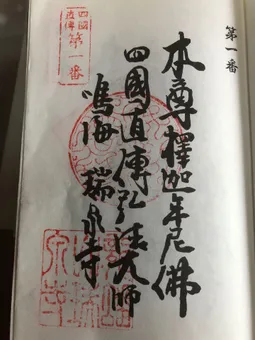 第一番
本尊釋迦牟尼佛
四國直傳弘法大師
鳴海 瑞泉寺
四國
直傳
第一番